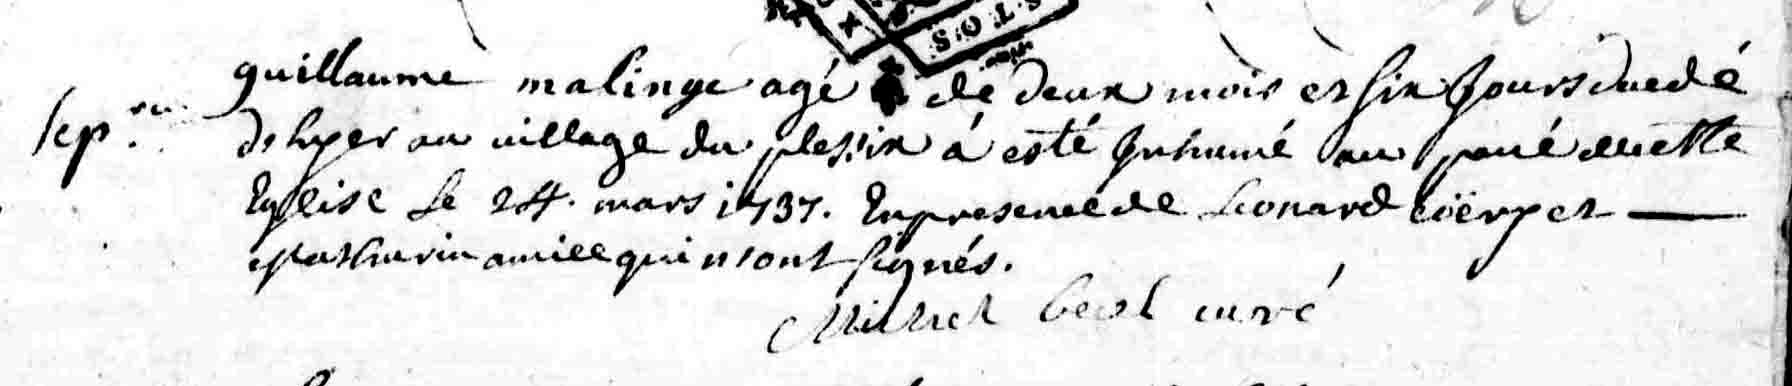 S. T O. S
guillaume malinge agé de deux mois et six Jours decedé
Sep.re
d'hyer au village du plessix á esté Inhumé au pavé de cette
Eglise Le 24. mars 1737. En presence de Leonard et
Mathurin amice qui n sont signés.
Michel curé